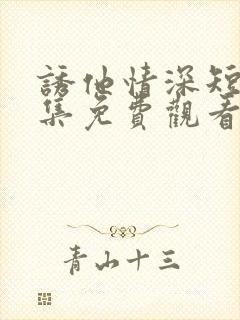 誘他情深短
集免費觀看
青山十三